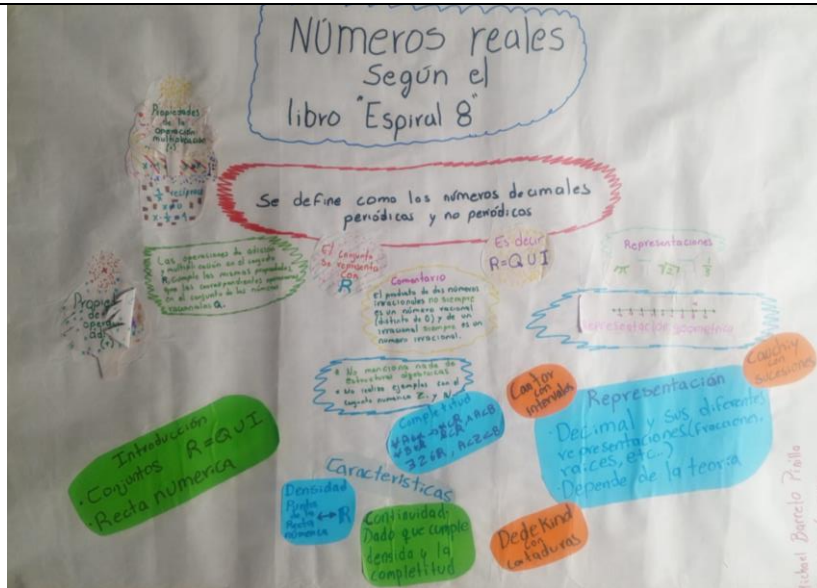 NÚMEROS reales
Según el
libro "Espiral 8"
Se define como los números decimales
periódicas y no periódicas
Propiedades
de la
operación
multiplicación
recíproco
x≠0
Las operaciones de adición
y multiplicación en el conjunto
R cumple las mismas propiedades
que las correspondientes operaciones
en el conjunto de los números
racionales Q.
El conjunto
se representa
con
R
Es decir
R=QUI
Comentario
El producto de dos números
irracionales no siempre
es un número racional
(distinto de 0) y de un
irracional siempre es un
número irracional.
Representaciones
π
Representación geométrica
* No menciona nada de
estructuras algebraicas
* No realiza ejemplos con el
conjunto numérico Z y N
Introducción
• Conjuntos R=QUI
• Recta numerica
Completitud
Cantor
con
intervalos
Cauchy
con
sucesiones
Representación
• Decimal y sus diferentes
representaciones (Fracción,
raíces, etc..)
• Depende de la teoría
Características
Densidad
Recta
numérica
↔ R
Continuidad:
Dado que cumple
densida y la
completitud
Dedekind
con
cortaduras